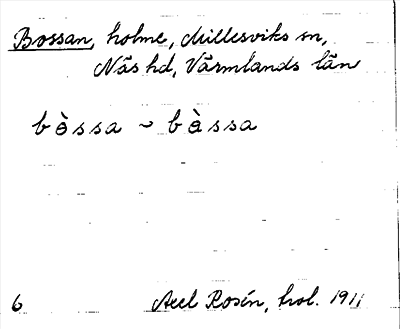 Bossan, holme, Millesviks sn,
Näs hd, Värmlands län
bòssa ~ bàssa
6 Axel Rosén, hol. 1911